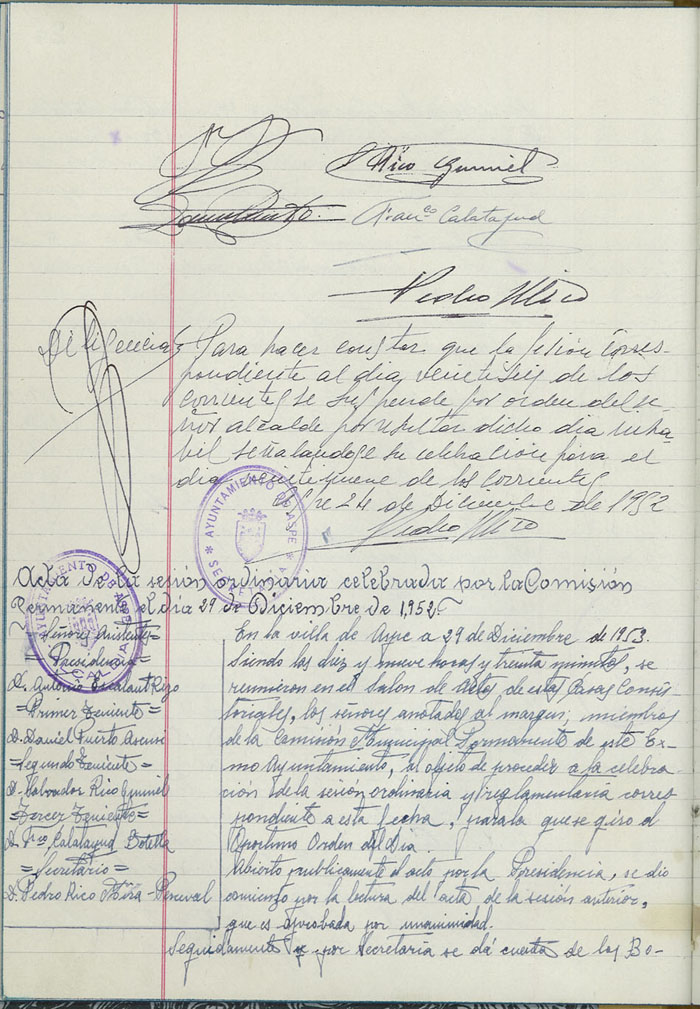 Rico Gumiel
Franco Calatayud
Pedro Mico
Diligencia
Para hacer constar que la sesión corres-
pondiente al dia veintiseis de los
corrientes se suspende por orden del se-
ñor alcalde por resultar dicho dia inha-
bil señalandose su celebracion para el
dia veintinueve de los corrientes
Aspe 24 de Diciembre de 1952
AYUNTAMIENTO DE ASPE
Acta de la sesión ordinaria celebrada por la Comisión
Permanente el día 29 de Diciembre de 1,952.
Señores Asistentes
= Presidencia =
D. Antonio Escalant Rizo
= Primer Teniente =
D. Daniel Puerto Asensi
= Segundo Teniente =
D. Salvador Rico Gumiel
= Tercer Teniente =
D. Fco Calatayud Botella
= Secretario =
D. Pedro Rico Mira-Perceval
En la villa de Aspe a 29 de Diciembre de 1953.
Siendo las diez y nueve horas y treinta minutos, se
reunieron en el Salon de Actos de estas Casas Consis-
toriales, los señores anotados al margen, miembros
de la Comisión Municipal Permanente de este Ex-
mo Ayuntamiento, al objeto de proceder a la celebra-
ción de la sesión ordinaria y reglamentaria corres
pondiente a esta fecha, para la que se giró el
oportuno Orden del día.
Abierto publicamente el acto por la Presidencia, se dio
comienzo por la lectura del acta de la sesión anterior,
que es aprobada por unanimidad.
Seguidamente y por Secretaría se dá cuenta de los Bo-